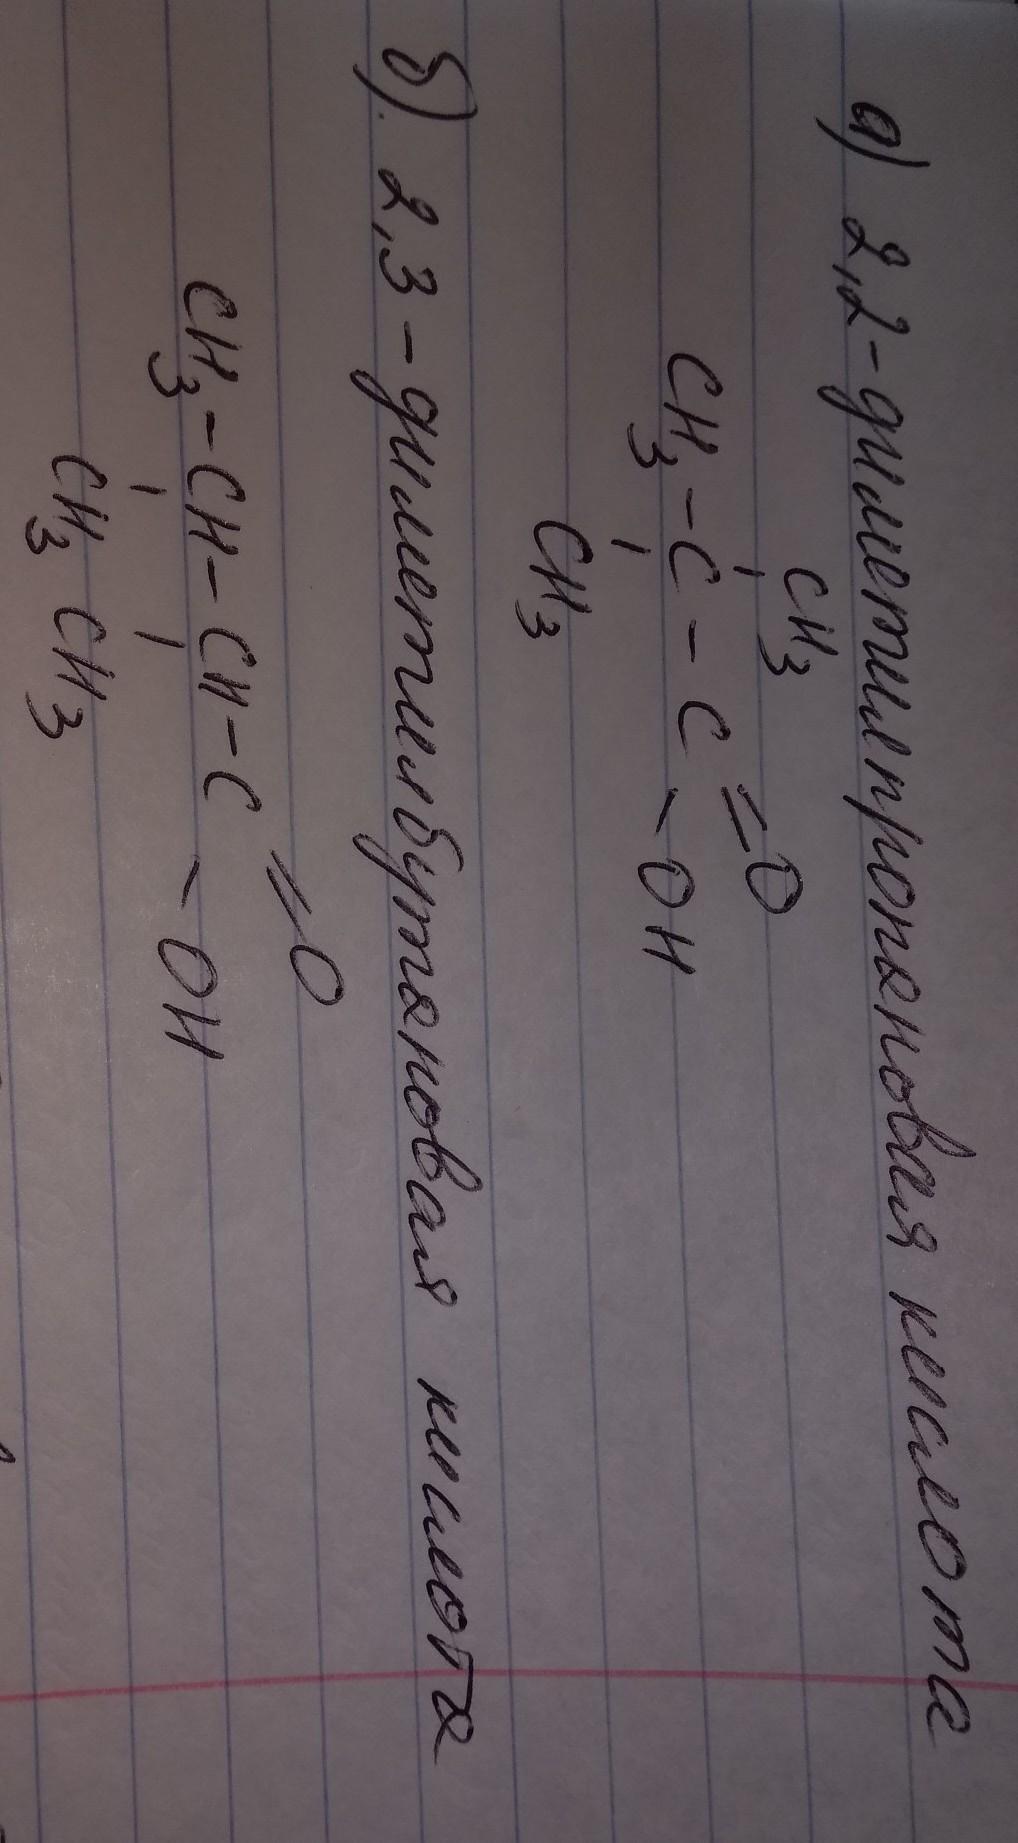 а) 2,2-диметилпропановая кислота
CH3
CH3-C-C=O
-OH
CH3
б). 2,3-диметилбутановая кислота
=O
CH3-CH-CH-C
-OH
CH3 CH3